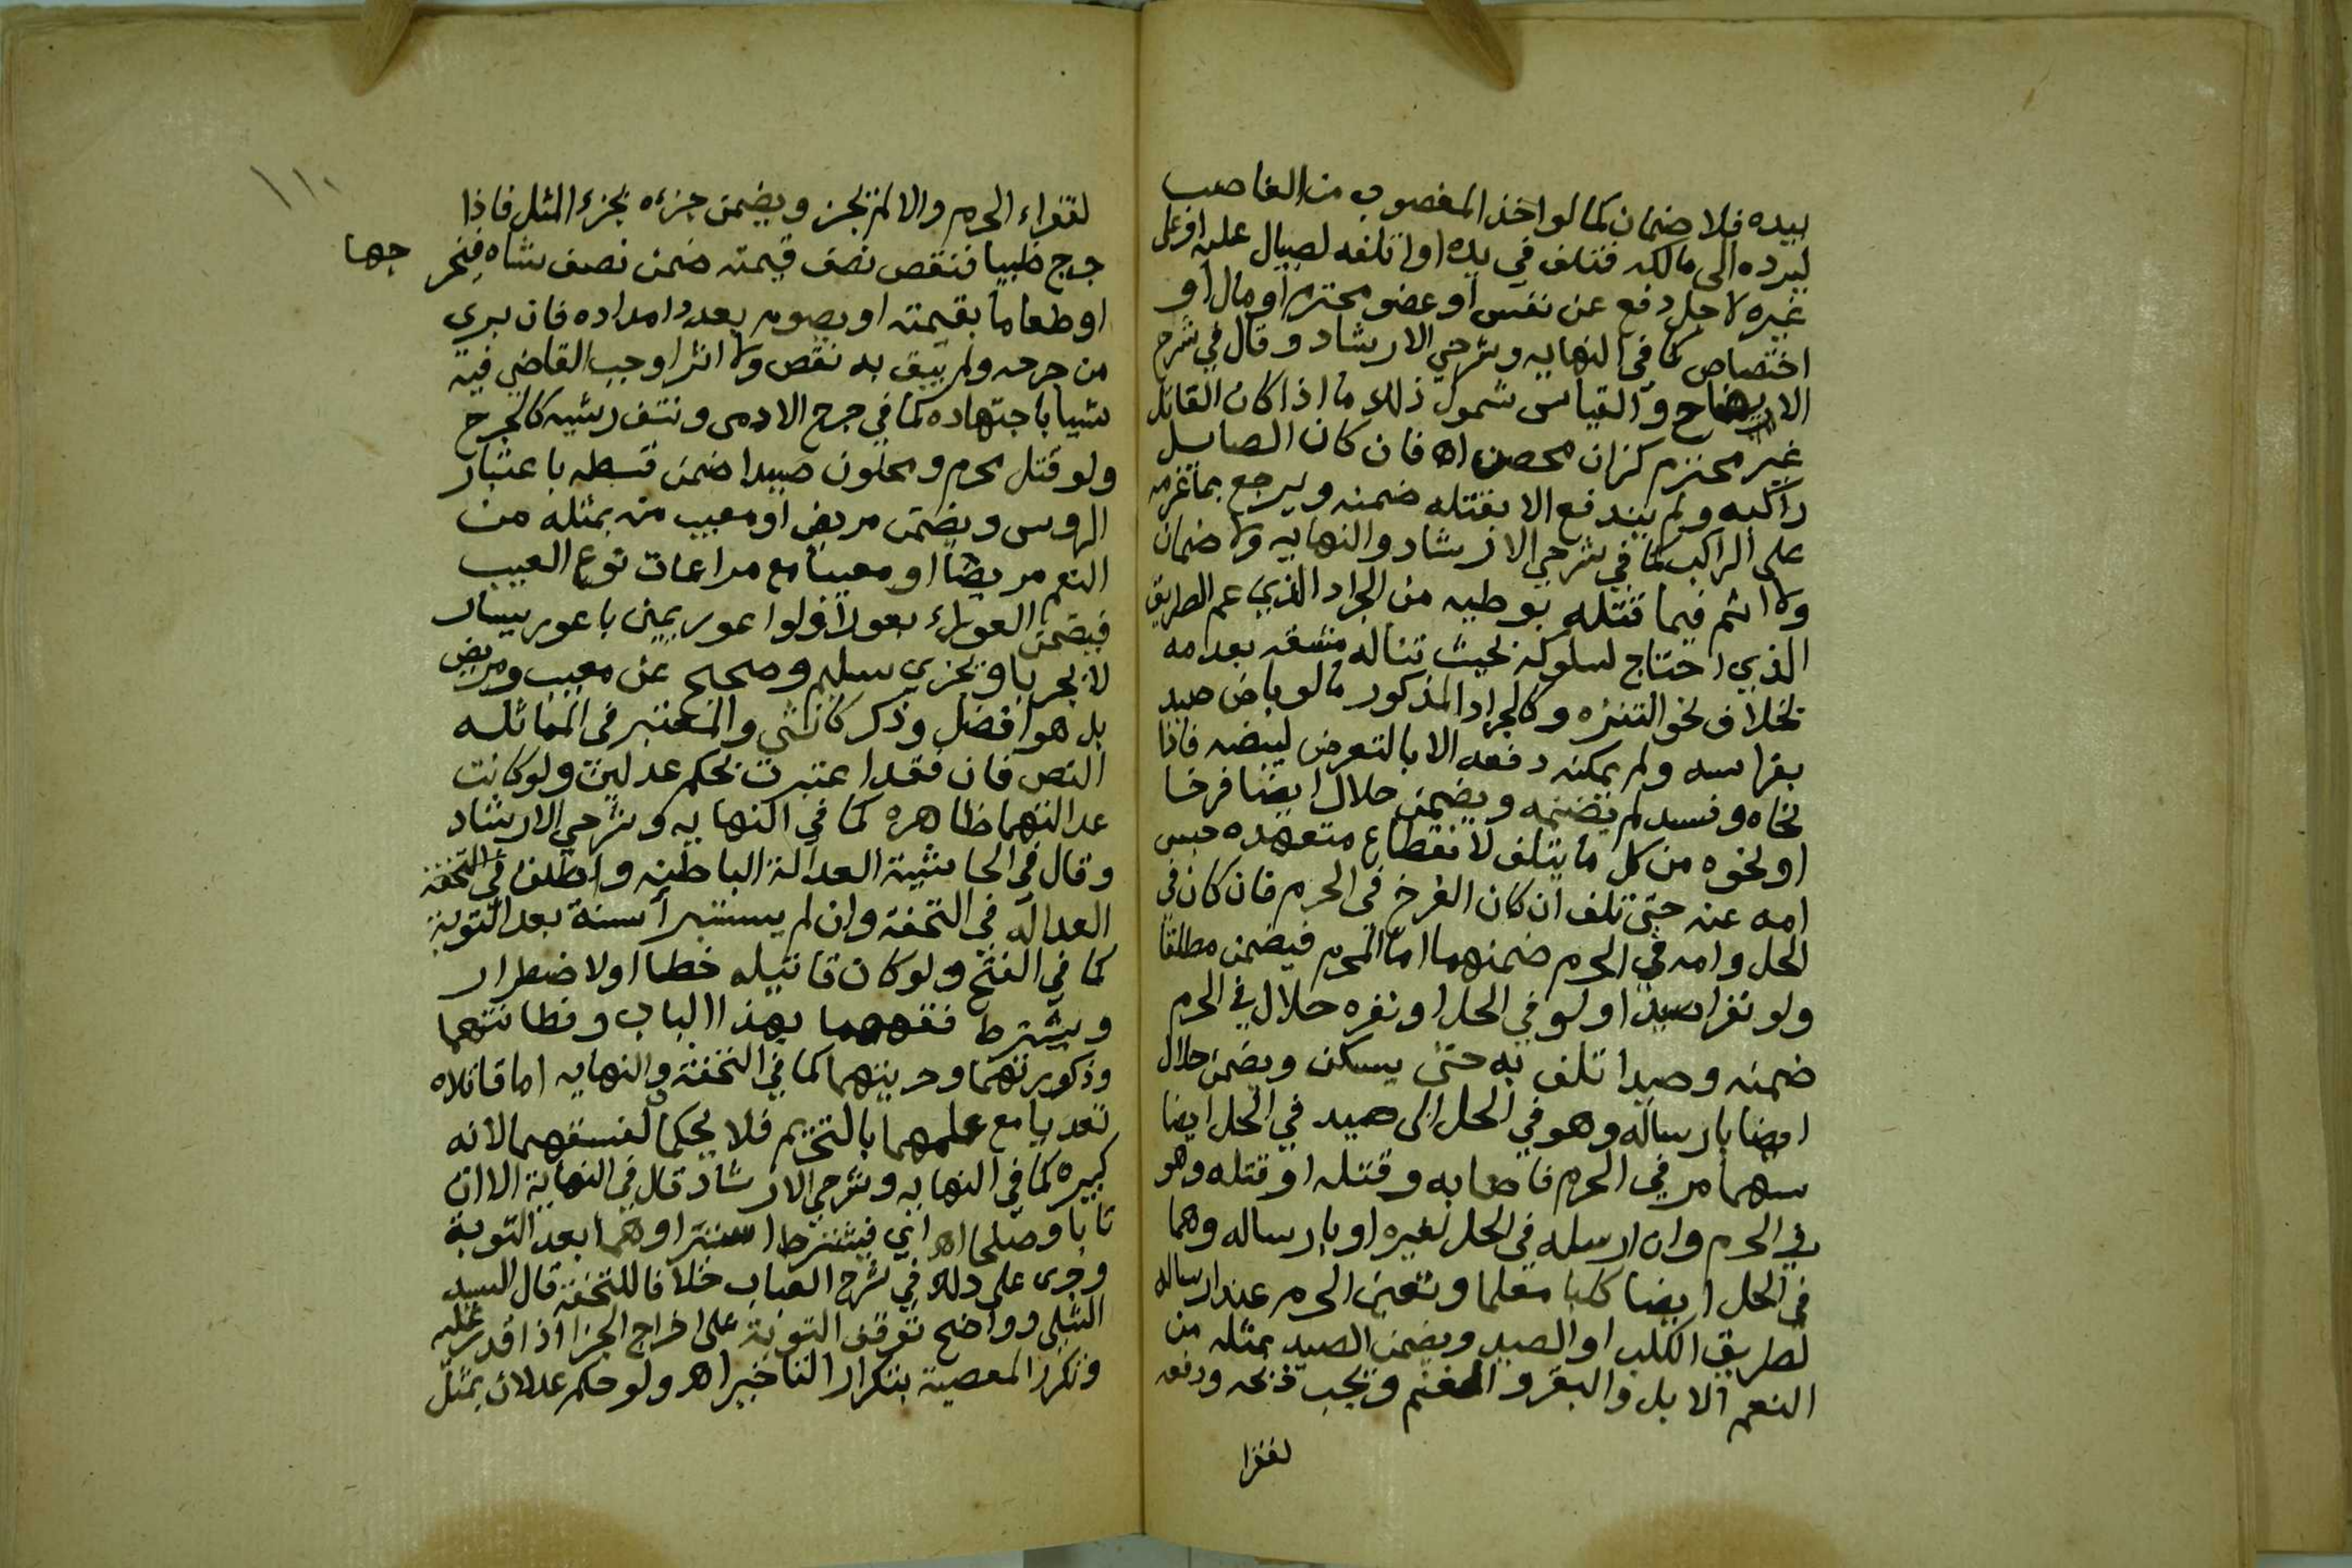 بيده فلا ضمان كما لو اخذ المغصوب من الغاصب
ليرده الى مالكه فتلف في يده او اتلفه لصيال عليه او على
غيره لاجل دفع عن نفس او عضو محترم او مال او
اختصاص كما في النهايه وشرحي الارشاد وقال في شرح
الايضاح والقياس شمول ذلك ما اذا كان القاتل
غير محترم كزان محصن اه فان كان الصايل
راكبه ولم يندفع الا بقتله ضمنه ويرجع بما غرمه
على الراكب كما في شرحي الارشاد والنهايه ولا ضمان
ولا اثم فيما قتله بوطيه من الجراد الذي عم الطريق
الذي احتاج لسلوكه بحيث تناله مشقه بعدمه
بخلاف نحو التنزه وكالجراد المذكور ما لو باض صيد
بفراسه ولم يمكنه دفعه الا بالتعرض لبيضه فاذا
نحاه وفسد لم يضمنه ويضمن حلال ايضا فرخا
او نحوه من كل ما يتلف لانقطاع متعهده حبس
امه عنه حتى تلف ان كان الفرخ في الحرم فان كان في
الحل وامه في الحرم ضمنهما اما المحرم فيضمن مطلقا
ولو نفر صيدا ولو في الحل او نفره حلال في الحرم
ضمنه وصيدا تلف به حتى يسكن ويضمن حلال
ايضا بارساله وهو في الحل الى صيد في الحل ايضا
سهما مر في الحرم فاصابه وقتله او قتله وهو
في الحرم وان ارسله في الحل لغيره او بارساله وهما
في الحل ايضا كلبا معلما وتعين الحرم عند ارساله
لطريق الكلب او الصيد ويضمن الصيد بمثله من
النعم الابل والبقر والغنم ويجب ذبحه ودفعه
لفقرا
١١٠
لفقراء الحرم والا لم يجز ويضمن جزءه بجزء المثل فاذا
جرح ظبيا فنقص نصف قيمته ضمن نصف شاه فيخر
جها
او طعاما بقيمته او يصوم بعدد امداده فان بري
من جرحه ولم يبق به نقص ولا اثر اوجب القاضي فيه
شيا باجتهاده كما في جرح الادمى ونتف ريشه كالجرح
ولو قتل محرم ومحلون صيدا ضمن قسطه باعتبار
الروس ويضمن مريض او معيب منه بمثله من
النعم مريضا او معيبا مع مراعات نوع العيب
فيضمن العورا بعورا فلو اعور يمين باعور يسار
لا بجرباو يجزي سليم وصحيح عن معيب ومريض
بل هو افضل وذكر كانثى والمعتبر في المماثله
النص فان فقد اعتبرت بحكم عدلين ولو كانت
عدالتهما ظاهره كما في النهايه وشرحي الارشاد
وقال في الحاشية العدالة الباطنه واطلق في التحفه
العداله في التحفة وان لم يستبرآ سنة بعد التوبة
كما في الفتح ولو كان قاتليه خطا او لاضطرار
ويشترط فقههما بهذا الباب وفطانتهما
وذكورتهما وحريتهما كما في التحفة والنهايه اما قاتلاه
تعديا مع علمهما بالتحريم فلا يحكما لفسقهما لانه
كبيره كما في النهايه وشرحي الارشاد قال في النهاية الا ان
تابا وصلحا اه اي فيشترط استبراوهما بعد التوبة
وجرى على ذلك في شرح العباب خلافا للتحفة قال السيد
الشلى وواضح توقف التوبة على اخراج الجزا اذا قدر عليه
وتكرر المعصية بتكرار التاخير اه ولو حكم عدلان بمثل